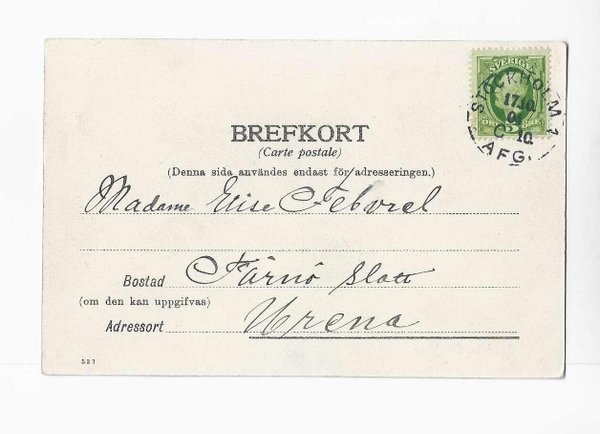 SVERIGE
STOCKHOLM 1
17.10.
10.
AFG.
5 ÖRE
BREFKORT
(Carte postale)
(Denna sida användes endast för adresseringen.)
Madame Elise Febvrel
Bostad Tärnö Slott
(om den kan uppgifvas)
Adressort Vrena
531